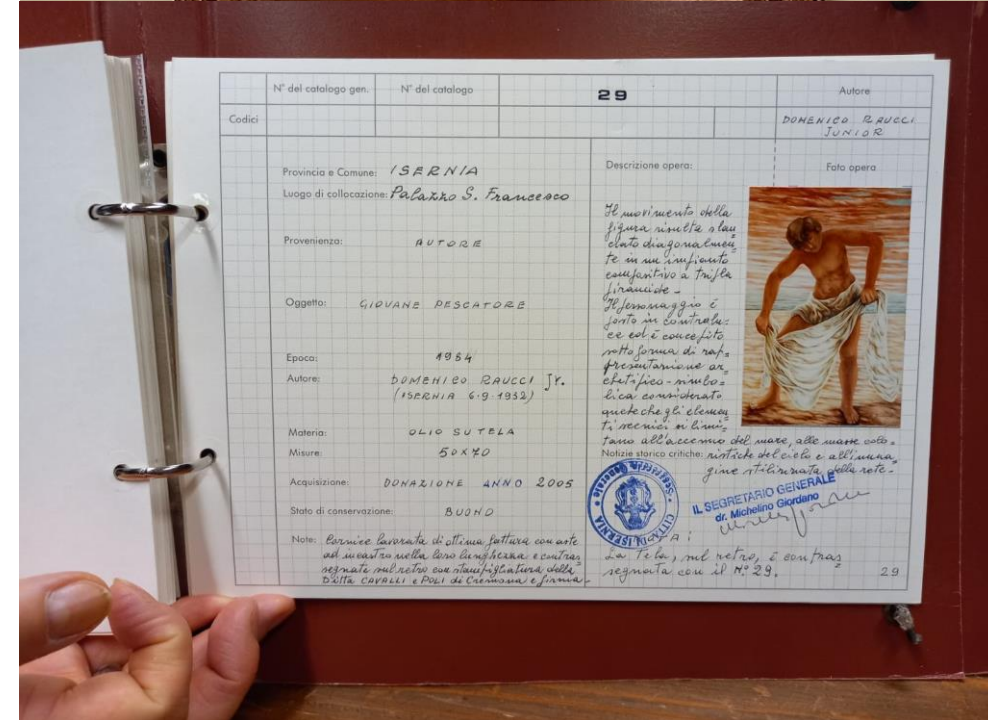 N° del catalogo gen.
N° del catalogo
29
Autore
Codici
DOMENICO RAUCCI
JUNIOR
Provincia e Comune: ISERNIA
Luogo di collocazione: Palazzo S. Francesco
Provenienza: AUTORE
Oggetto: GIOVANE PESCATORE
Epoca: 1984
Autore: DOMENICO RAUCCI Jr.
(ISERNIA 6-9-1952)
Materia: OLIO SU TELA
Misure: 50x70
Acquisizione: DONAZIONE ANNO 2005
Stato di conservazione: BUONO
Note: Cornice lavorata di ottima fattura con aste
ad incastro nella loro lunghezza e contras
segnate sul retro con stampigliatura della
Ditta CAVALLI e POLI di Cremona e firma-
Descrizione opera:
Foto opera
Il movimento della
figura risulta slan
ciato diagonalmen
te in un impianto
compositivo a tripla
piramide -
Il personaggio è
posto in controlu=
ce ed è concepito
sotto forma di rap=
presentazione ar=
chetipico-simbo=
lica considerato
anche che gli elemen
ti scenici si limi=
tano all'accenno del mare, alle masse colo=
Notizie storico critiche: ristiche del cielo e all'imma=
gine stilizzata della rete-
Segreteria Generale
CITTÀ DI ISERNIA
IL SEGRETARIO GENERALE
dr. Michelino Giordano
La Tela, sul retro, è contras
segnata con il N° 29.
29